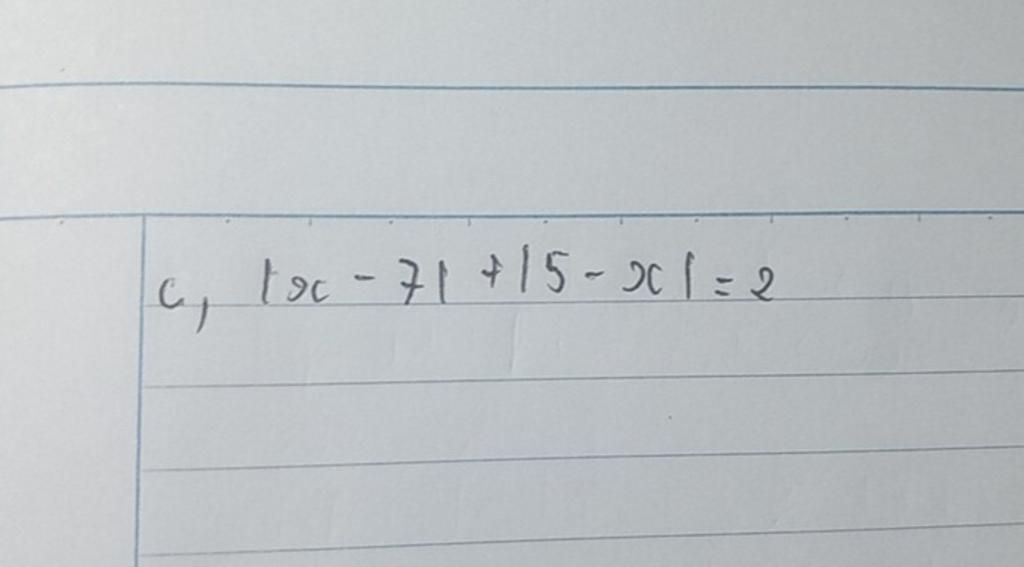 c, |x - 7| + |5 - x| = 2